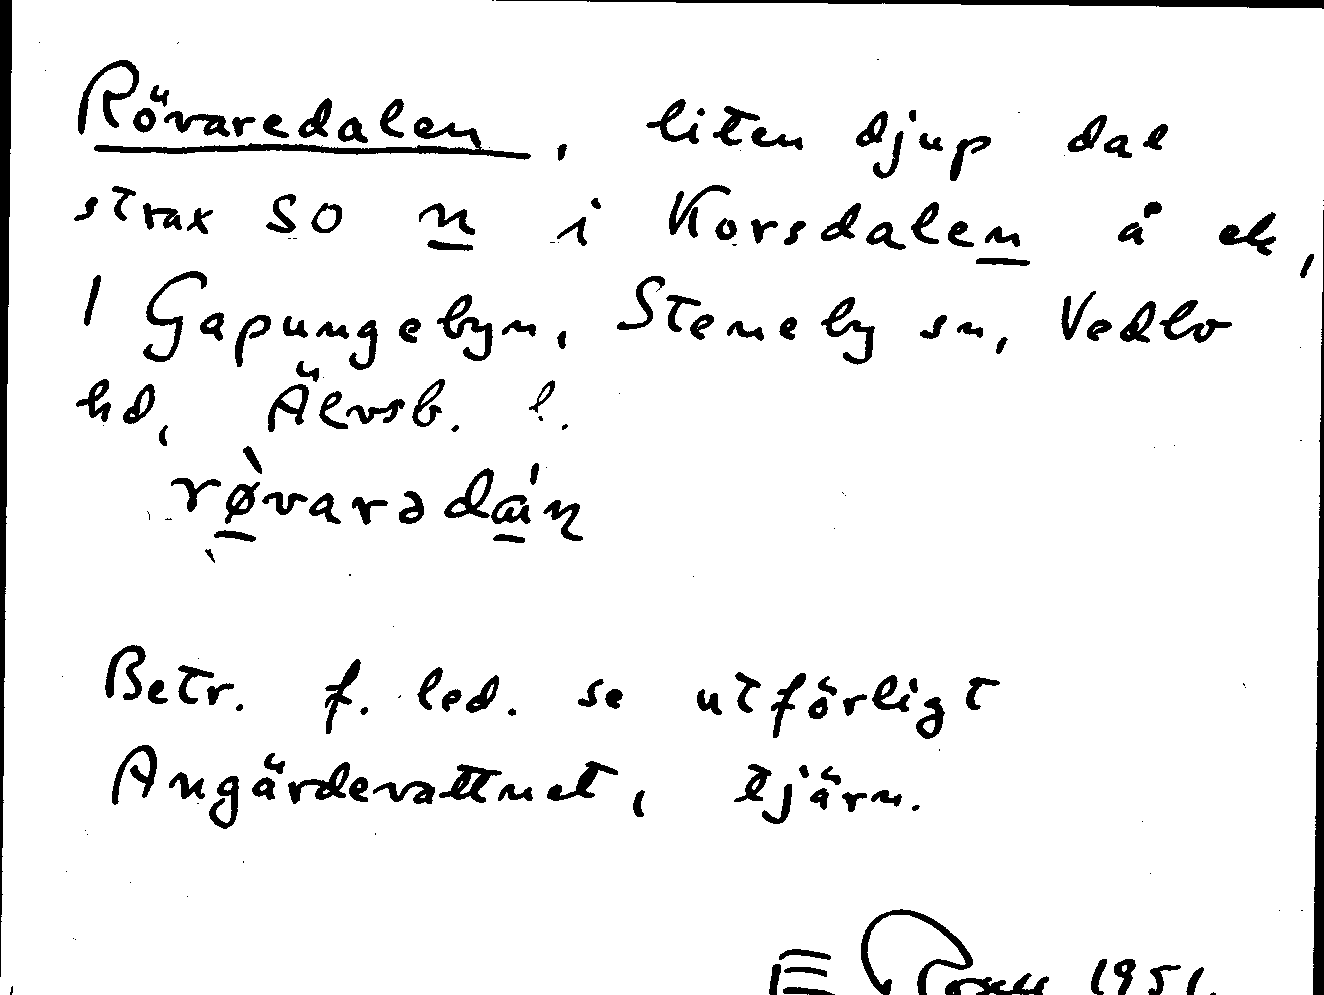 Rövaredalen, liten djup dal
strax SO n i Korsdalen å ek,
1 Gapungebyn, Steneby sn, Vedbo
hd, Älvsb. l.
Betr. f. led. se utförligt
Angärdevattnet, tjärn.
E 1951.